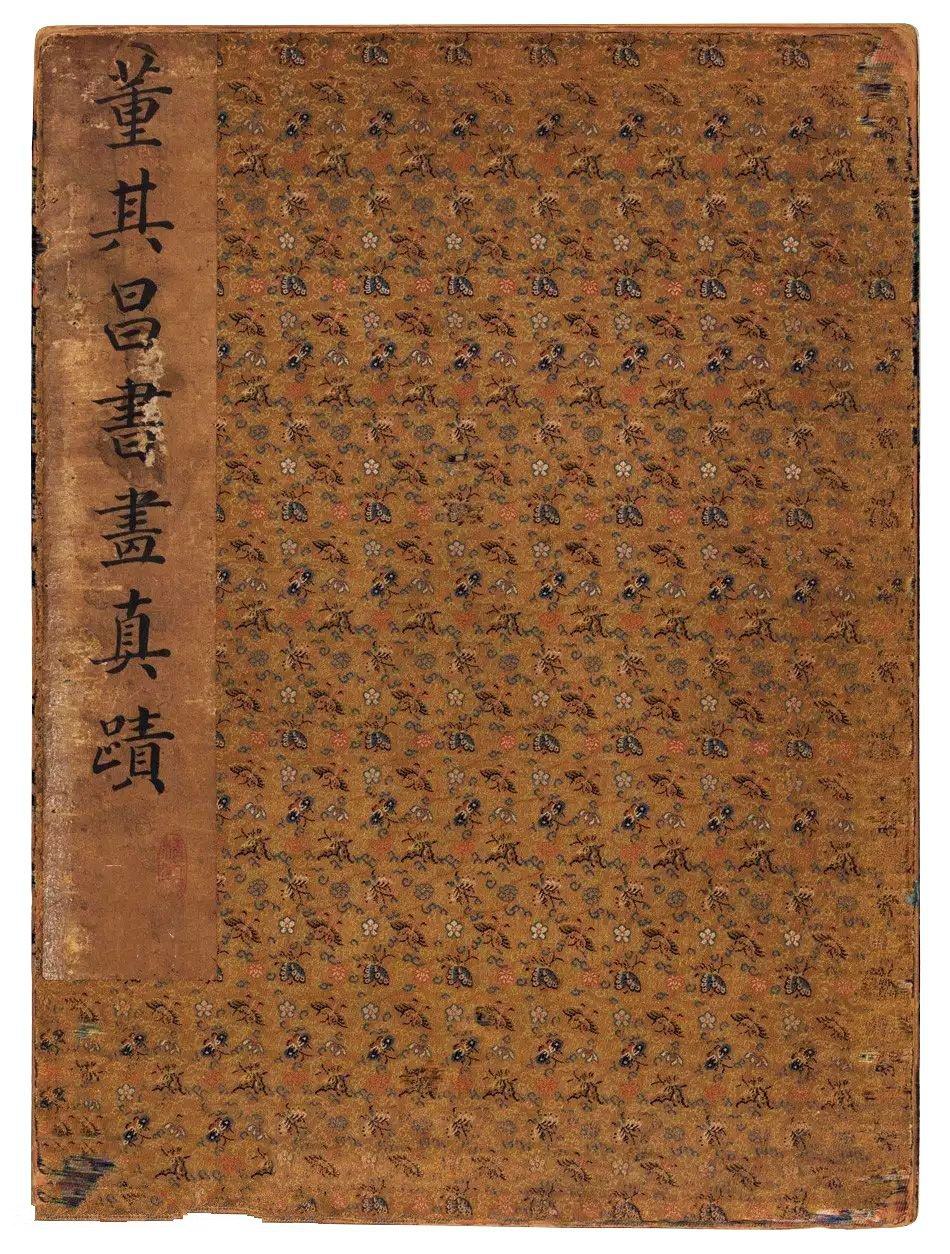 董其昌書畫真蹟